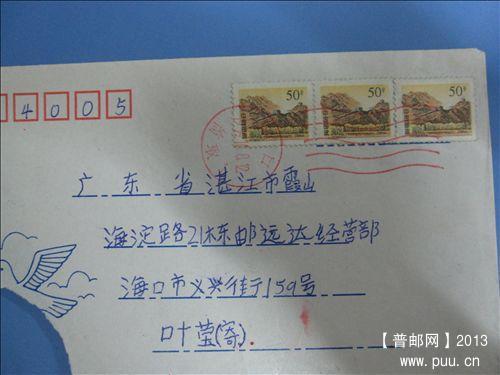 50分 50分 50分
4005
广东省湛江市霞山
海淀路21栋邮远达经营部
海口市义兴街159号
叶莹(寄).
【普邮网】2013
www.puu.cn